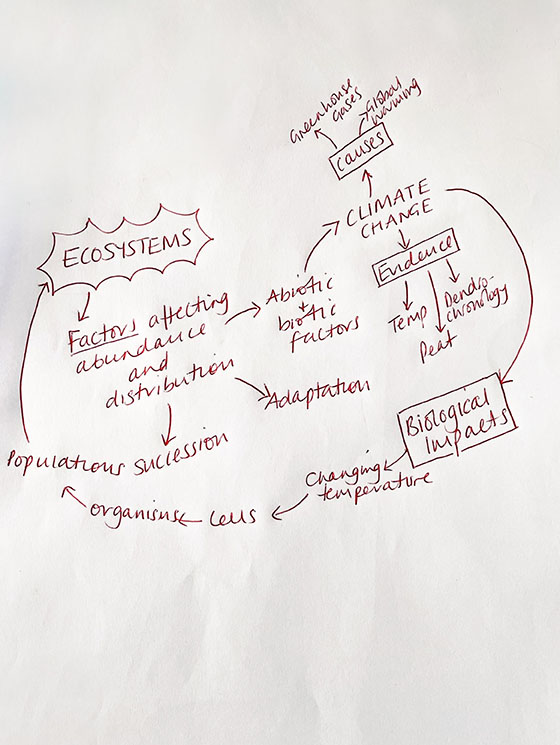 Greenhouse
gases
Global
warming
causes
CLIMATE
CHANGE
Evidence
Temp
Peat
Dendro-
chronology
ECOSYSTEMS
Factors affecting
abundance
and
distribution
Abiotic
+
biotic
factors
Adaptation
Succession
Biological
Impacts
Changing
temperature
Cells
organisms
Populations